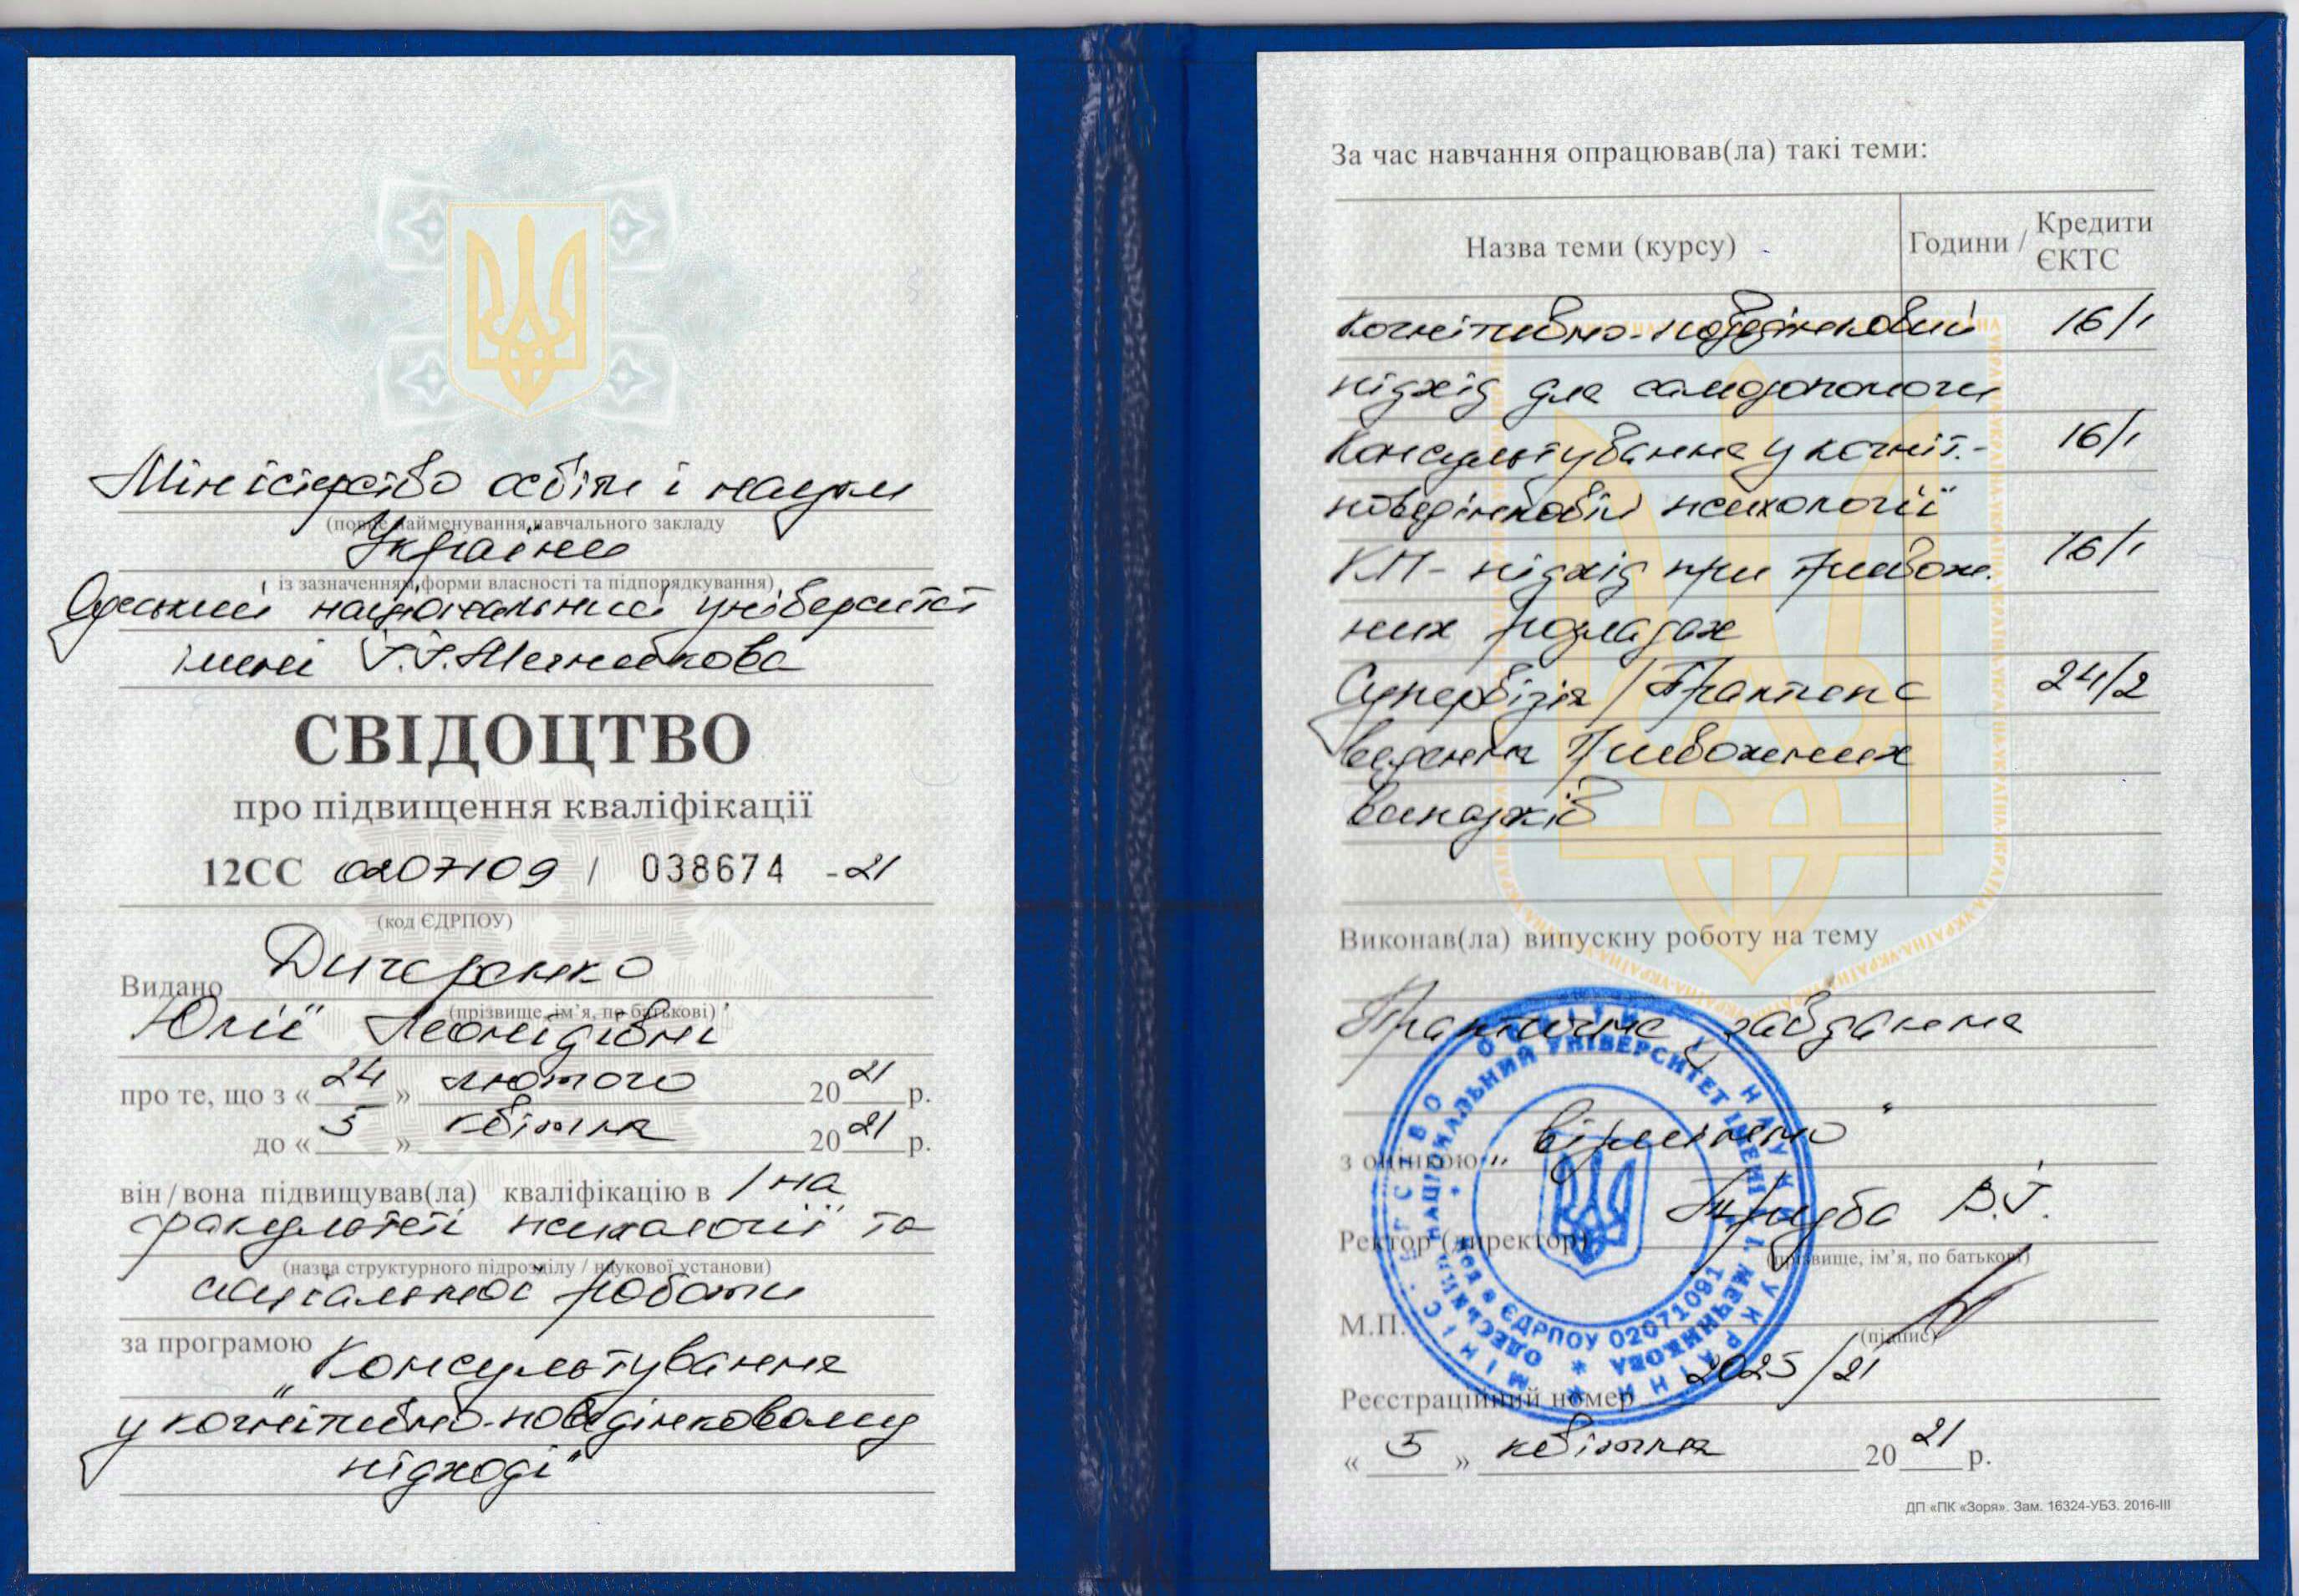 Міністерство освіти і науки
(повне найменування навчального закладу
України
із зазначенням форми власності та підпорядкування)
Одеський національний університет
імені І.І.Мечникова
СВІДОЦТВО
про підвищення кваліфікації
12СС 0207109 / 038674 -21
(код ЄДРПОУ)
Видано
(прізвище, ім’я, по батькові)
Юлії Леонідівні
про те, що з « 24 » лютого 2021 р.
до « 5 » квітня 2021 р.
він/вона підвищував(ла) кваліфікацію в /на
факультеті психології та
(назва структурного підрозділу / наукової установи)
соціальної роботи
за програмою „Консультування
у когнітивно-поведінковому
підході"
За час навчання опрацював(ла) такі теми:
Назва теми (курсу) Години / Кредити ЄКТС
Когнітивно-поведінковий 16/1
підхід для самодопомоги
Консультування у когніт.- 16/1
поведінковій психології
КП- підхід при тривож. 16/1
них розладах
Супервізія / 24/2
ведення тривожних
випадків
Виконав(ла) випускну роботу на тему
Практичне завдання
з оцінкою „відмінно"
Ректор (директор) Труба В.І.
(прізвище, ім’я, по батькові)
М.П.
(підпис)
Реєстраційний номер 2025/21
« 5 » квітня 2021 р.
ДП «ПК «Зоря». Зам. 16324-УБЗ. 2016-III
МІНІСТЕРСТВО ОСВІТИ І НАУКИ УКРАЇНИ
ОДЕСЬКИЙ НАЦІОНАЛЬНИЙ УНІВЕРСИТЕТ ІМЕНІ І. І. МЕЧНИКОВА
код в ЄДРПОУ 02071091